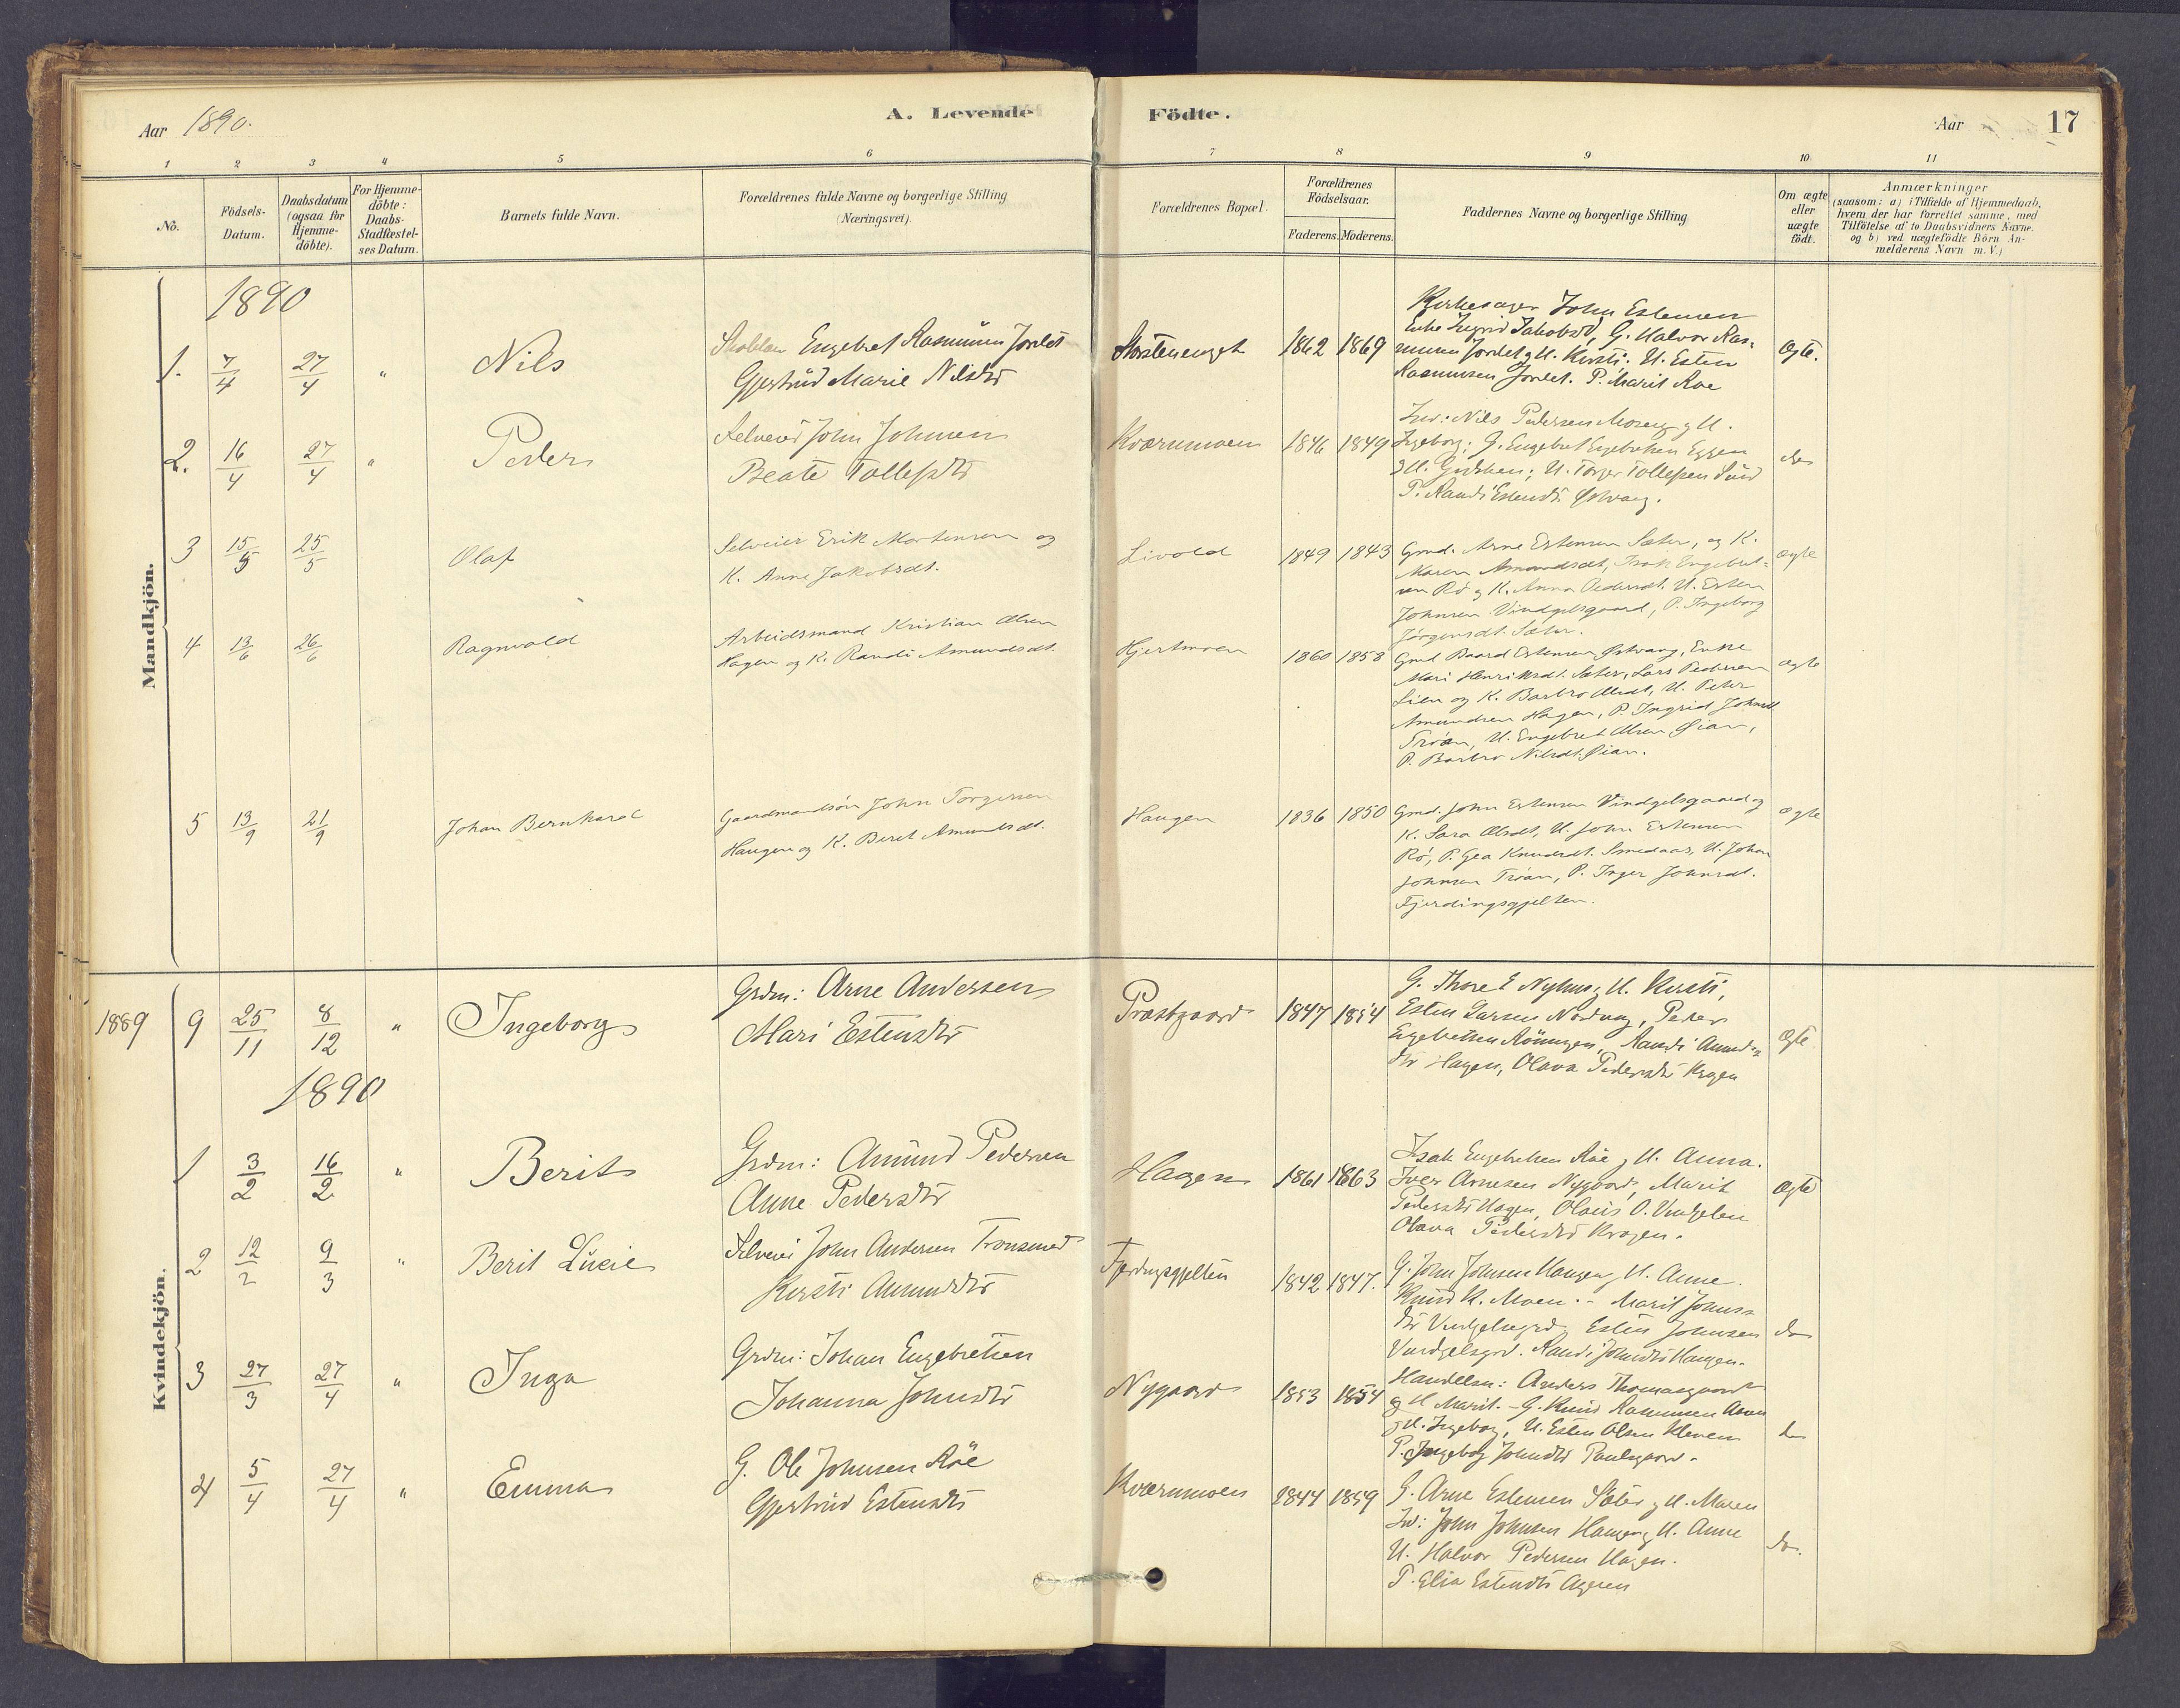 Aar 1890.
A. Levende Födte.
Aar 17
1 2 3 4 5 6 7 8 9 10 11
No.
Födsels-Datum.
Daabsdatum (ogsaa for Hjemme-döbte).
For Hjemme-döbte: Daabs-Stadfæstel-ses Datum.
Barnets fulde Navn.
Forældrenes fulde Navne og borgerlige Stilling
(Næringsvei).
Forældrenes Bopæl.
Forældrenes Födselsaar.
Faderens. Moderens.
Faddernes Navne og borgerlige Stilling
Om ægte eller uægte födt.
Anmærkninger
(saasom: a) i Tilfælde af Hjemmedaab,
hvem der har forrettet samme, med
Tilföielse af to Daabsvidners Navne.
og b) ved uægtefödte Börn An-
melderens Navn m. V.)
Mandkjön.
1890
1. 7/4 27/4 " Nils
Engebret Rasmusen Jordet
Gjertrud Marie Nilsdtr
1862 1869
Kirkesanger John Estensen
Enke Ingrid Jakobsd, G. Halvor Ras-
musen Jordet g H. Kirsti; U. Esten
Rasmusen Jordet. P. Marit Roe
Ægte.
2. 16/4 27/4 " Peder
Selveier John Johnsen
Beate Tollefsdtr
Kværnmoen 1846 1849
Ind: Nils Pedersen Moseng g H.
Ingeborg; G. Engebret Engebretsen Eggen
g H. Gudsken; U. Torger Tollefsen Sund
P. Randi Estensdtr Østvang.
do
3 15/5 25/5 Olaf
Selveier Erik Mortensen og
K. Anne Jakobsdt.
Livold 1849 1843
Gmd. Arne Estensen Sæter, og K.
Maren Amundsdt, Isak Engebret-
sen Rö og K. Anna Pedersdt. U. Esten
Johnsen Vindgelsgaard, P. Ingeborg
Jörgensdt. Sæter.
ægte
4 13/6 26/6 Ragnvald
Arbeidsmand Kristian Olsen
Hagen og K. Randi Amundsdt.
Hjertmoen 1860 1858
Gmd Baard Estensen Østvang, Enke
Mari Henriksdt. Sæter, Lars Pedersen
Lien og K. Barbro Olsdt, U. Peter
Amundsen Hagen, P. Ingrid Johnsdt
Tröan, U. Engebret Olsen Øian,
P. Barbro Nilsdt. Øian.
ægte
5 13/9 21/9 Johan Bernhard
Gaardmandsön John Torgersen
Haugen og K. Beret Amundsdt.
Haugen 1836 1850
Gmd. John Estensen Vindgelsgaard og
K. Sara Olsdt, U. John Estensen
Rö, P. Gea Knudsdt. Smedaas, U. Johan
Johnsen Tröan, P. Inger Johnsdt.
Fjerdingsgjelten.
ægte
Kvindekjön.
1889 9 25/11 8/12 " Ingeborg
Grdm: Arne Andersen
Mari Estensdtr
Præstgaard 1847 1854
G. Thore E Nyhus g H. Kirsti,
Esten Larsen Nordvang, Peder
Engebretsen Rönningen, Randi Amunds-
dtr Hagen, Olava Pedersdtr Krogen
Ægte
1890
1 3/2 16/2 " Berit
Grdm: Amund Pedersen
Anne Pedersdtr
Hagen 1861 1863
Isak Engebretsen Röe g H. Anna.
Iver Arnesen Nygaard, Marit
Pedersdtr Hagen, Olaus O. Vingelen
Olava Pedersdtr Krogen.
Ægte
2 12/2 9/3 " Berit Lucie
Selveier John Andersen Tronsmed
Kirsti Amundsdtr
Fjerdingsgjelten 1842 1847.
G. John Johnsen Haugen g H. Anne.
Knud K. Moen. - Marit Johns-
dtr Vindgelsgrd, Esten Johnsen
Vindgelsgrd. Randi Johnsdtr Haugen.
do
3 27/3 27/4 " Inga
Grdm: Johan Engebretsen
Johanna Johnsdtr
Nygaard 1853 1854
Handelsm: Anders Thomasgaard
og H Marit. - G. Knud Rasmusen Aasen
g H. Ingeborg, U. Esten Olsen Kleven
P. Ingeborg Johnsdtr Paulsgaard.
do
4 5/4 27/4 " Emma
G. Ole Johnsen Röe
Gjertrud Estensdtr
Kværnmoen 1844 1859
G. Arne Estensen Sæter g H. Maren
Ind: John Johnsen Haugen g H. Anne
U. Halvor Pedersen Hagen.
P. Elia Estensdtr Aasen
do.